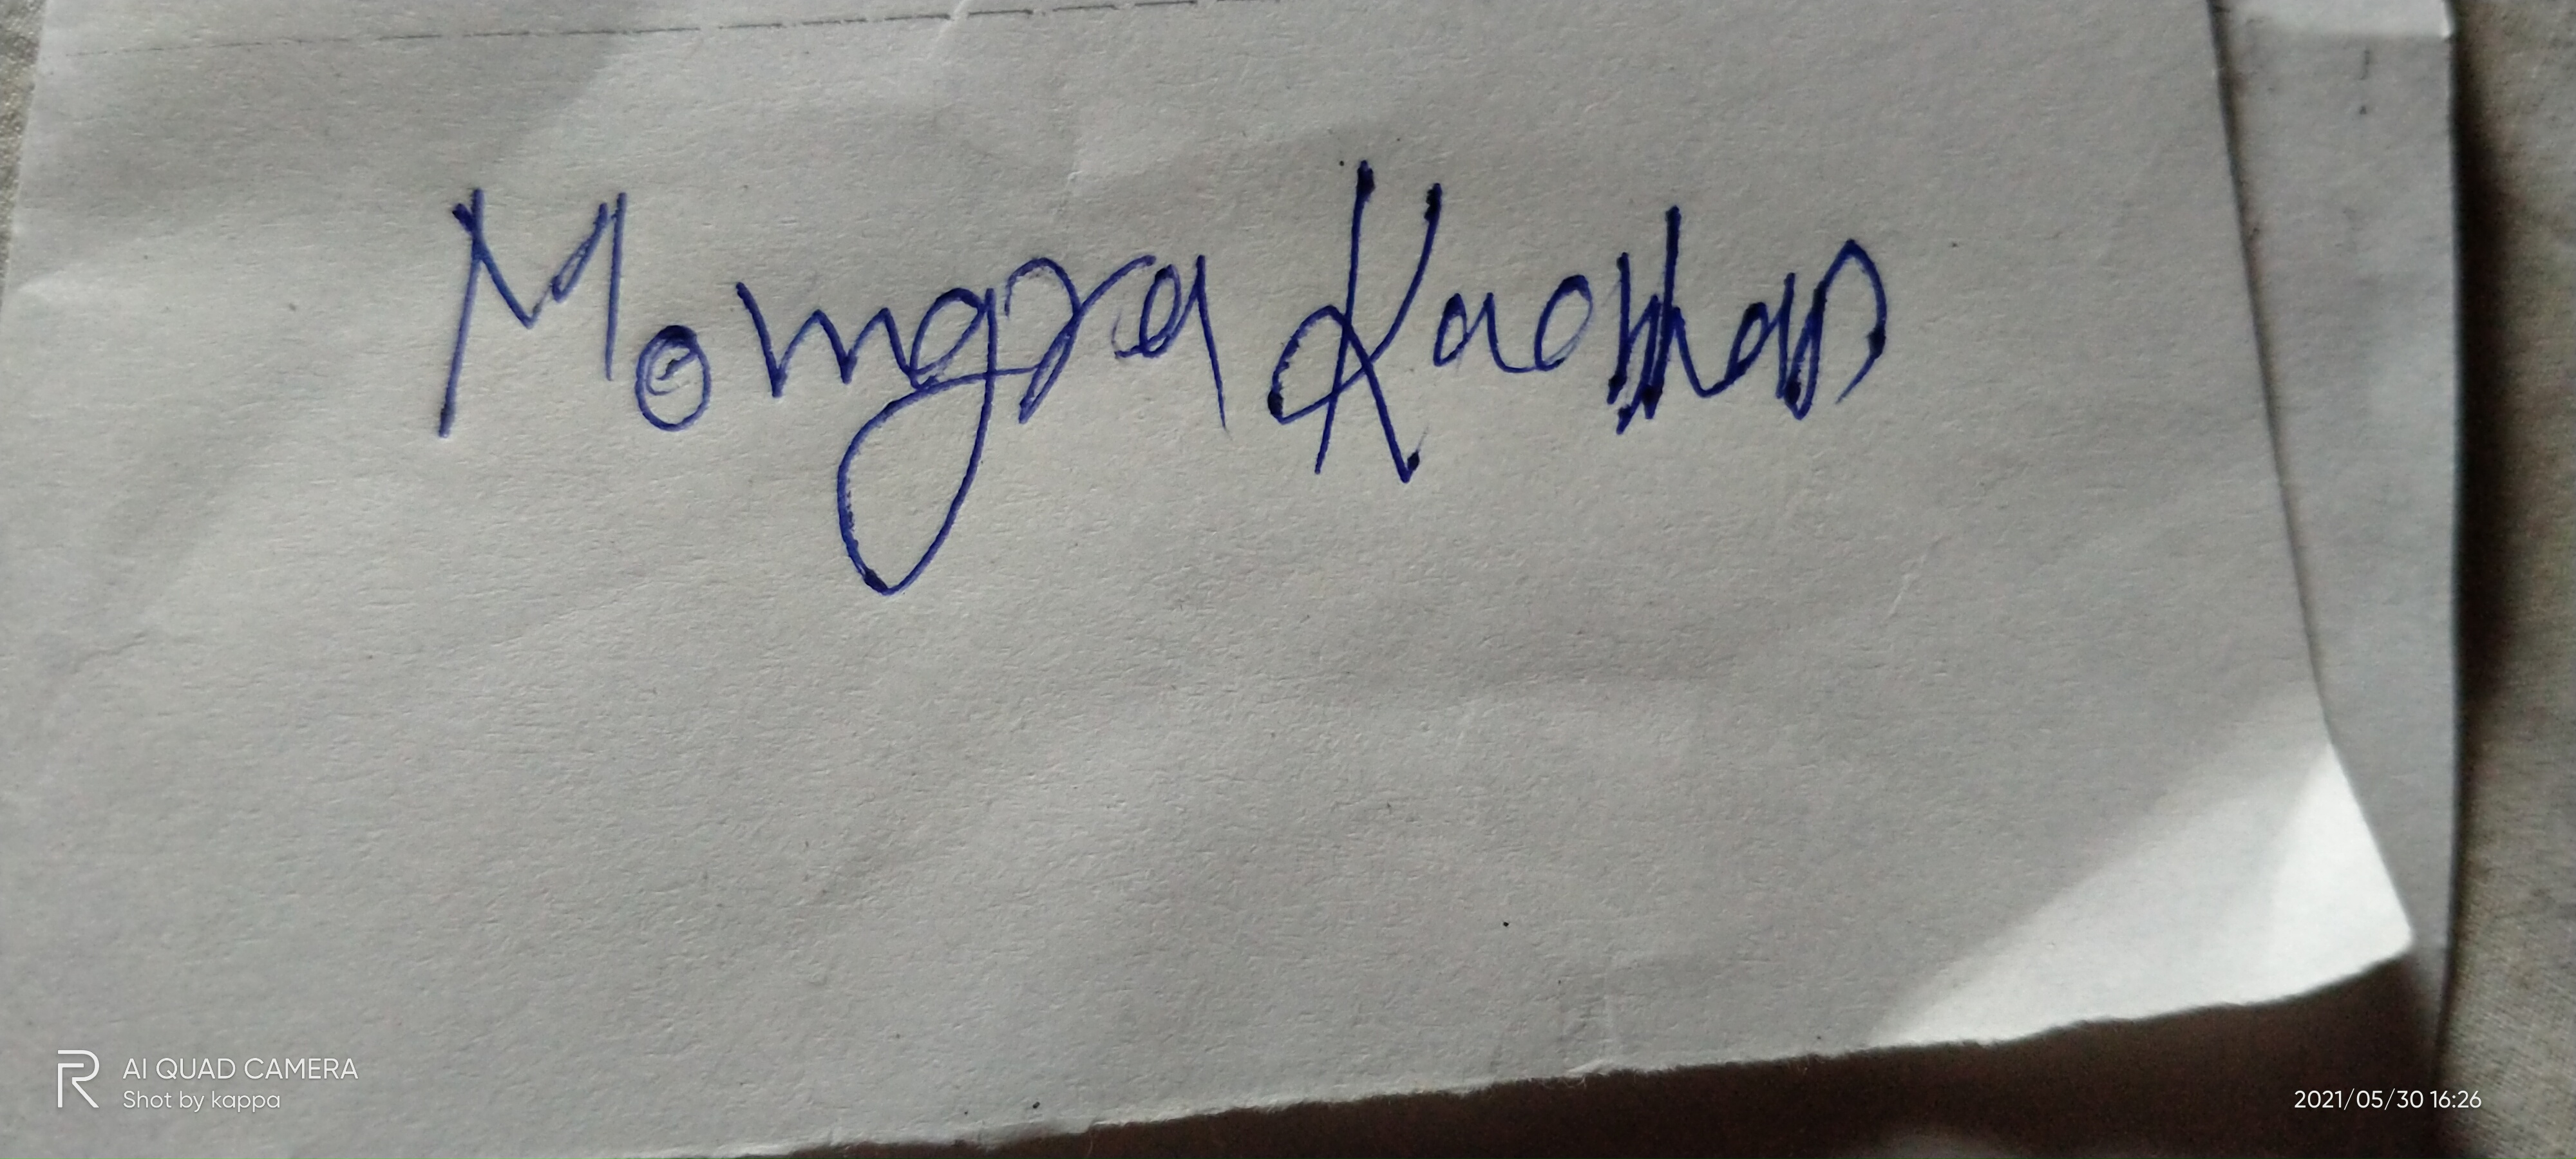 Mongra
AI QUAD CAMERA
Shot by kappa
2021/05/30 16:26